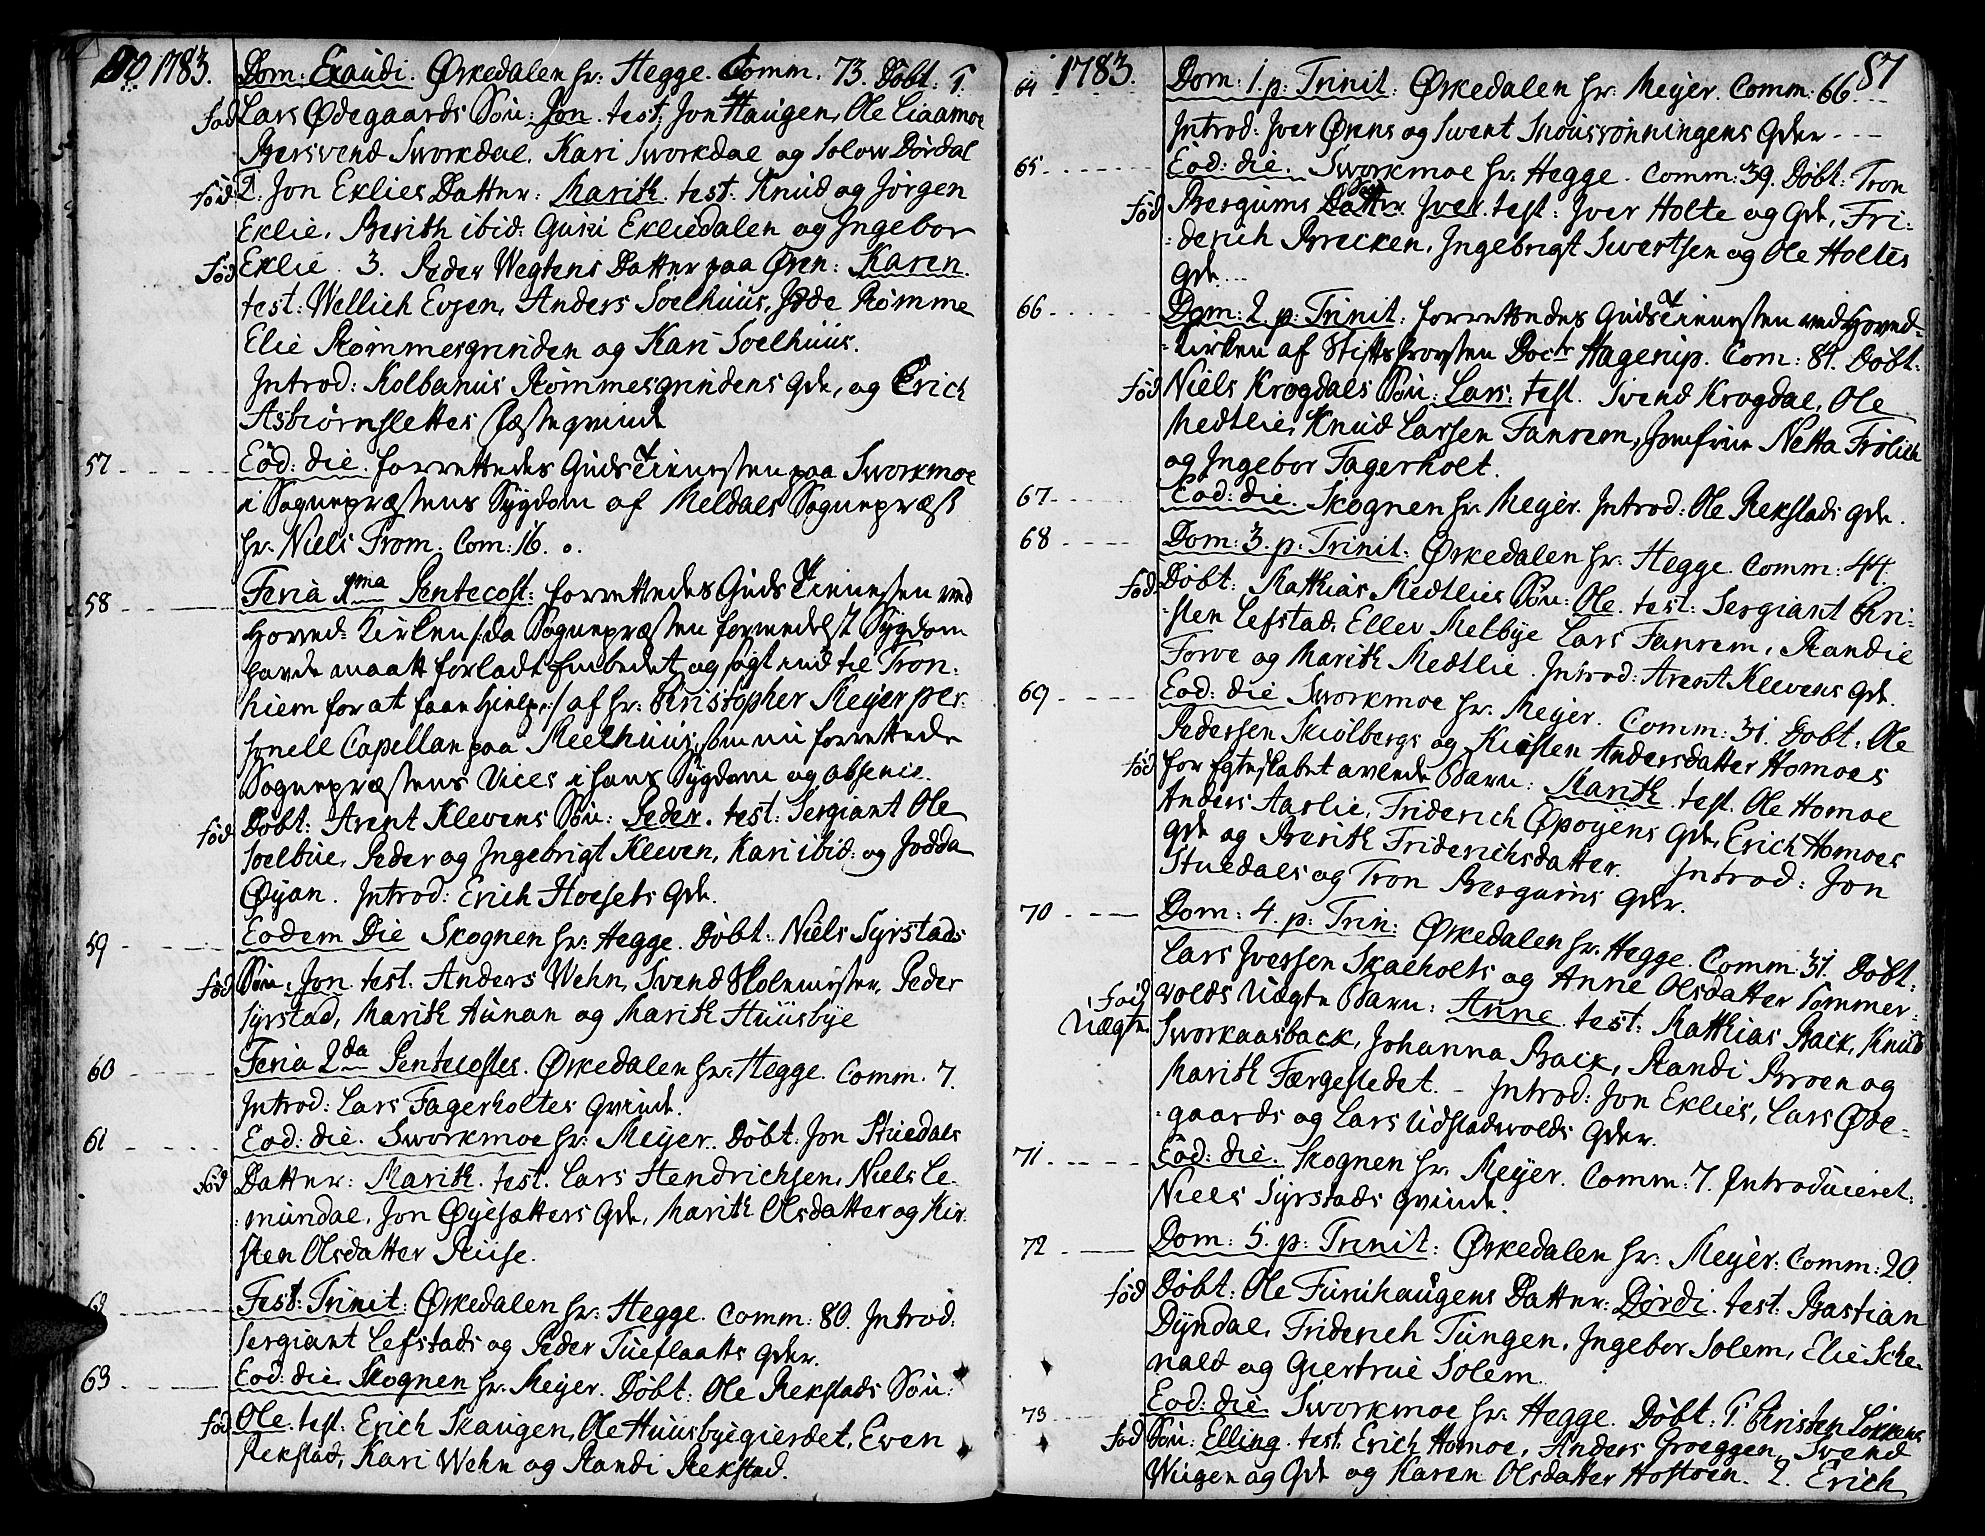 1783. Dom: Exaudi. Ørkedalen hr: Hegge. Comm. 73. Døbt: 1.
Fød Lars Ødegaards Søn: Jon. test: Jon Haugen, Ole Liaamoe
Bersvend Sworkdal, Kari Sworkdal og Solow Dørdal
Fød 2. Jon Eklies Datter: Marith. test. Knud og Jørgen
Eklie, Berith ibid: Guru Ekliedalen og Ingebor
Fød Eklie. 3. Peder Wegtens Datter paa Øren: Karen.
test: Wellich Evjen, Anders Soelhuus, Rømme
Elie Rømmesgrinden og Kari Soelhuus.
Introd: Kolbanus Rømmesgrindens Qde, og Erich
Asbiørnslettes fæsteqvinde
57 Eod: die. forrettedes Guds Tienesten paa Sworkmoe
i Sognepræstens Sygdom af Meldals Sognepræst
hr. Niels From. Com: 16.
58 Feria 1ma Pentecost: forrettedes Guds Tienesten ved
Hoved-Kirken /: da Sognepræsten formedelst Sygdom
havde maatt forladt Embedet og søgt ind til Tron-
hiem for at faae hielp :/ af hr: Christopher Meyer per-
sonell Capellan paa Meelhuus, som nu forrettede
Sognepræstens Vices i hans Sygdom og absence.
Fød Døbt: Arent Klevens Søn: Peder. test: Sergiant Ole
Soelbue, Peder og Ingebrigt Kleven, Kari ibid: og Jodda
Øyan. Introd: Erich Hoesets Qde.
59 Eodem Die Skognen hr: Hegge. Døbt: Niels Syrstads
Fød Søn: Jon test: Anders Wehn, Svend Skolemester, Peder
Syrstad, Marith Aunan og Marith Huusbye
60 Feria 2da Pentecostes. Ørkedalen hr: Hegge. Comm. 7.
Introd: Lars Fagerholtes Qvinde.
61 Eod: die. Sworkmoe hr: Meyer. Døbt: Jon Stuedals
Fød Datter: Marith. test. Lars Hendrichsen, Niels Le-
mundal, Jon Øyesætters Qde, Marith Olsdatter og Kir-
sten Olsdatter Ruse.
62 Fest: Trinit: Ørkedalen hr: Hegge. Comm: 80. Introd:
Sergiant Lefstads og Peder Tueflaatts Qder.
63 Eod: die Skognen hr. Meyer. Døbt: Ole Rekstads Søn:
Fød Ole. test: Erich Skaugen, Ole Huusbyegierdet, Even
Rekstad, Kari Wehn og Randi Rekstad.
1783. 87
64 Dom: 1. p: Trinit: Ørkedalen hr: Meyer. Comm: 66.
Introd: Iver Ørens og Swent Snousrønningens Qder
65 Eod: die. Sworkmoe hr: Hegge. Comm: 39. Døbt: Tron
Fød Bergums Datter Iver. test: Iver Holte og Qde, Fri-
derich Brecken, Ingebrigt Swertsen og Ole Holtes
Qde.
66 Dom: 2. p: Trinit: forrettedes Guds Tienesten ved Hoved-
Kirken af Stiftsprovsten Doctr Hagerup. Com: 84. Døbt:
Fød Niels Krogdals Søn: Lars: test. Svend Krogdal, Ole
Medtlie, Knud Larsen Fanrem, Jomfrue Netta Frølich
og Ingebor Fagerholt.
67 Eod: die. Skognen hr. Meyer. Introd: Ole Rekstads Qde.
68 Dom: 3. p: Trinit: Ørkedalen hr: Hegge. Comm: 44.
Fød Døbt: Matthias Medtlies Søn: Ole. test: Sergiant Chri-
sten Lefstad, Eller Melbye Lars Fanrem, Randie
Forve og Marith Medtlie. Introd: Arent Klevens Qde.
69 Eod: die Sworkmoe hr. Meyer. Comm: 31. Døbt: Ole
Pedersen Skiølbergs og Kirsten Andersdatter Homoes
Fød for Egteskabet avlede Barn: Marith. test. Ole Homoe
Anders Aarlie, Friderich Øpoyens Qde, Erich Homoes
Qde og Berith Friderichsdatter. Introd: Jon
Stuedals og Tron Bergums Qder.
70 Dom: 4. p: Trin: Ørkedalen hr: Hegge. Comm: 31. Døbt:
Lars Iversen Skaeholts og Anne Olsdatter Sommer-
Fød Uægte volds Uægte Barn: Anne. test: Matthias Back, Knud
Sworkaasback, Johanna Back, Randi Broen og
Marith Færgestedet. - Introd: Jon Eklies, Lars Øde-
gaards og Lars Udstadvolds Qder.
71 Eod: die. Skognen hr. Meyer. Comm: 7. Introduceret:
Niels Syrstads Qvinde.
72 Dom: 5. p: Trinit: Ørkedalen hr: Meyer: Comm: 20.
Fød Døbt: Ole Furuhaugens Datter: Dørdi. test. Bastian
Dyndal, Friderich Tungen, Ingebor Solem, Elie Sche-
nald og Giertrue Solem.
73 Eod: die. Sworkmoe hr. Hegge. Døbt: 1. Christen Løkkens
Fød Søn: Elling. test. Erich Homoe, Anders Groeggen, Svend
Wugen og Qde og Karen Olsdatter Hostoen. 2. Erich